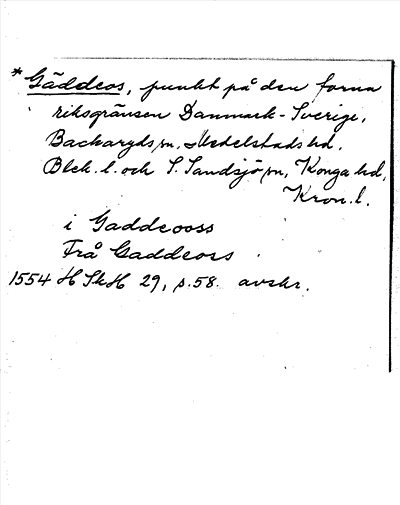 * Gäddeos, punkt på den forna
riksgränsen Danmark-Sverige,
Backaryds sn, Medelstads hd,
Blek. l. och S. Sandsjö sn, Konga hd,
Kron. l.
i Gaddeooss
Frå Gaddeoss
1554 H Sk H 29, s. 58. avskr.